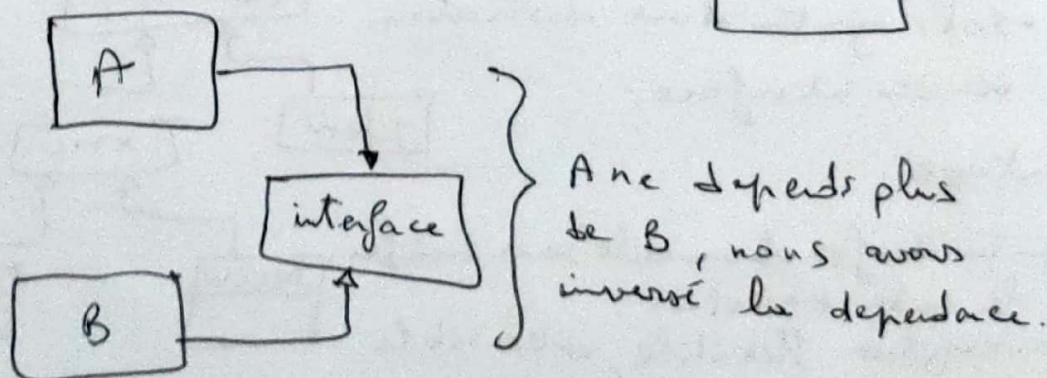 A
interface
B
A ne depends plus
de B, nous avons
inversé la dependance.